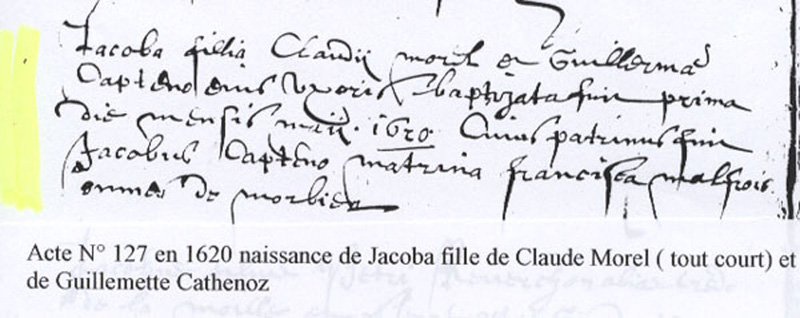 Jacoba fillia Claudij morel et Guillermae
Capteno eius Uxoris baptizata fuit prima
die mensis maij. 1620. Cuius patrinus fuit
Jacobus Capteno matrina francisca malfrois
omnes de morbier
Acte N° 127 en 1620 naissance de Jacoba fille de Claude Morel ( tout court) et
de Guillemette Cathenoz